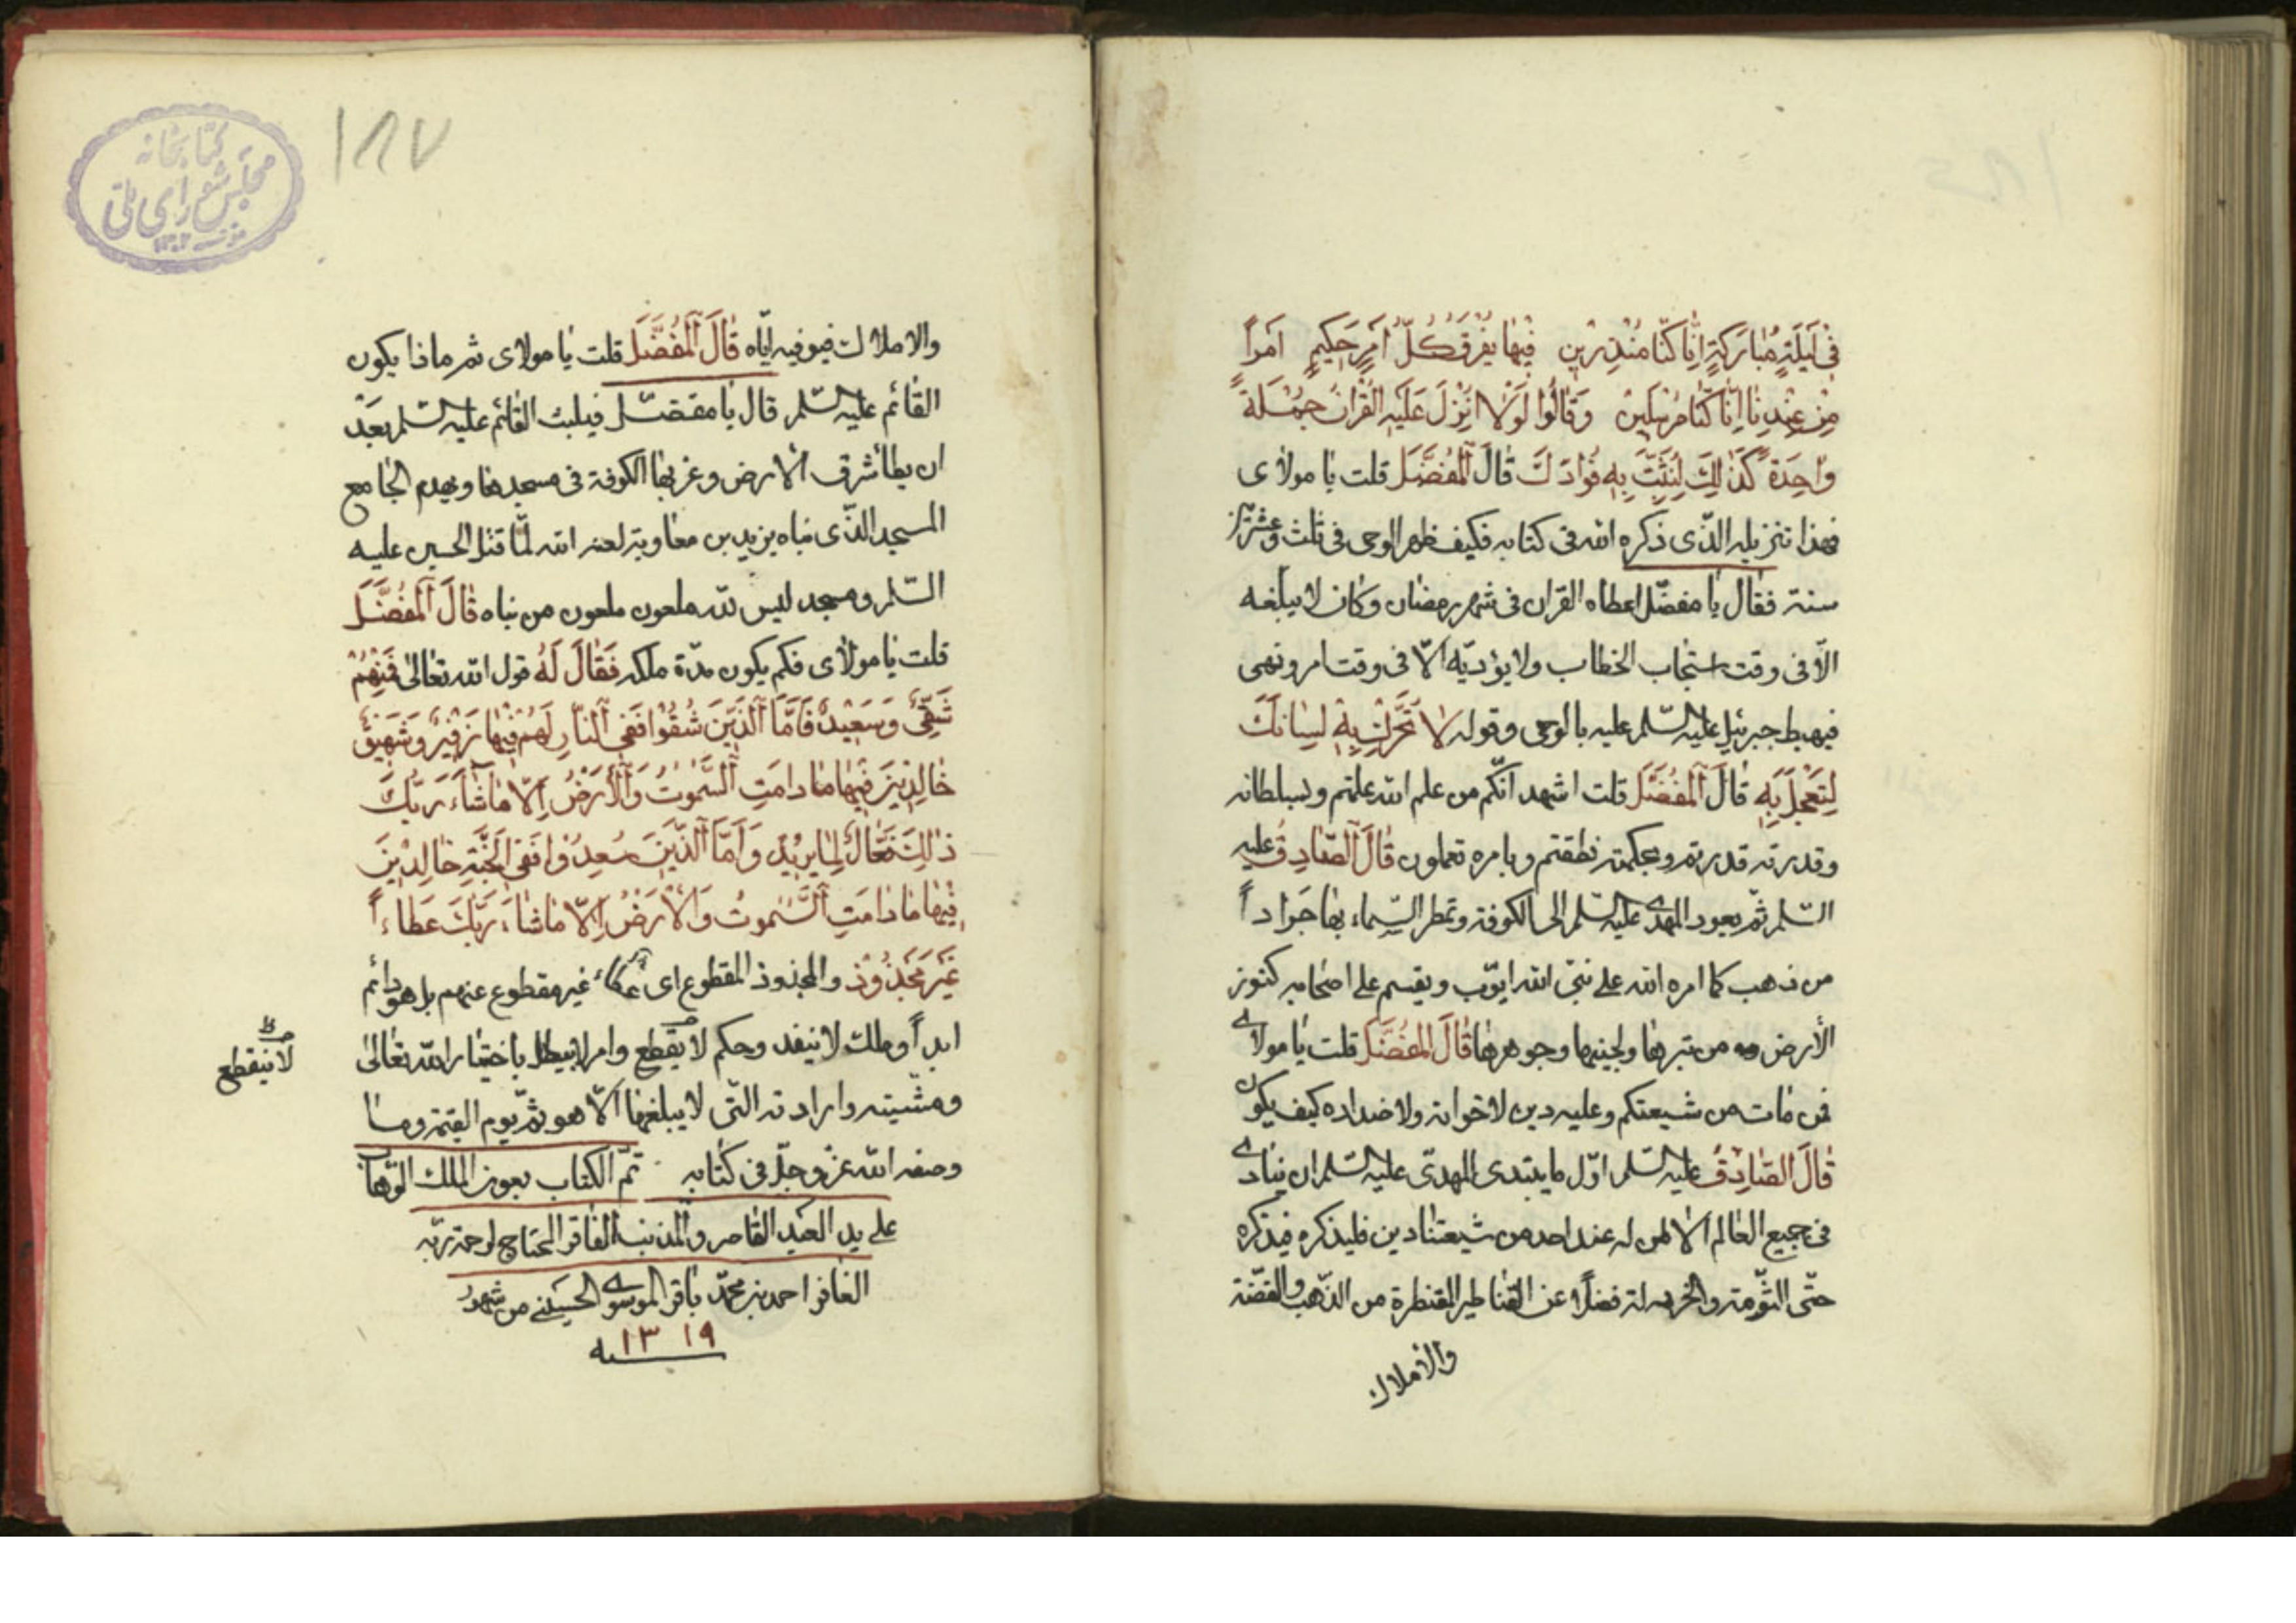 فی لَیلَةٍ مُبارَکَةٍ اِنّا کُنّا مُنْذِرینِ فیها یُفرَقُ کُلُّ اَمرٍ حَکیمٍ اَمراً
مِنْ عِنْدِنا اِنّا کُنّا مُرسَلینَ وَقالُوا لَوْلا نُزِّلَ عَلَیهِ القُرانُ جُمْلَةً
واحِدَةً کَذلِكَ لِنُثَبِّتَ بِهِ فُؤادَكَ قالَ اَلمُفَضَّلَ قلت یا مولای
فهذا تنزیله الذّی ذکره الله فی کتابه فکیف ظهر الوحی فی ثلث وعشرین
سنة فقال یا مفضّل اعطاه القران فی شهر رمضان وکان لا یبلغه
الّا فی وقت استجاب الخطاب ولا یؤدّیه الّا فی وقت امر ونهی
فیهبط جبرئیل علیه السّلم علیه بالوحی وقوله لا تُحَرِّكْ بِهِ لِسانَكَ
لِتَعْجَلَ بِهِ قالَ اَلمُفَضَّلَ قلت اشهد انّکم من علم الله علمتم وبسلطانه
وقدرته قدرتم وبحکمته نطقتم وبامره تعملون قالَ اَلصّادِقُ علیه
السّلم ثمّ یعود المهدی علیه السّلم الی الکوفة وتمطر السّماء بها جَراداً
من ذهب کما امره الله علی نبیّ الله ایّوب ویقسم علی اصحابه کنوز
الأرض من تبرها ولجینها وجوهرها قالَ المفضَّلَ قلت یا مولای
فمن مات من شیعتکم وعلیه دین لاخوانه ولاضداده کیف یکون
قالَ الصّادِقُ علیه السّلم اوّل ما یبتدی المهدیّ علیه السّلم ان ینادی
فی جمیع العالم الا لمن له عند احد من شیعتنا دین فلیذکره فیذکره
حتّی الثّومة والخردلة فضلاً عن القناطیر المقنطرة من الذّهب والفضّة
والاملاك
۱۸۷
کتابخانه
مجلس شورای ملی
والاملاك فیوفیه ایّاه قالَ اَلمُفَضَّلَ قلت یا مولای ثم ماذا یکون
القائم علیه السّلم قال یا مفضّل فیلبث القائم علیه السّلم بَعْدَ
ان یطأ شرق الارض وغربها الکوفة فی مسجدها ویهدم الجامع
المسجد الذّی بناه یزید بن معاویة لعنه الله لمّا قتل الحسین علیه
السّلم ومسجد لیس لله ملعون ملعون من بناه قالَ اَلمُفَضَّلَ
قلت یا مولای فکم یکون مدّة ملکه فَقالَ لَهُ قول الله تعالی فَمِنْهُمْ
شَقِیٌّ وَسَعیدٌ فَاَمَّا اَلَّذینَ شُقُوا فَفِی اَلنّارِ لَهُمْ فیها زَفیرٌ وَشَهیقٌ
خالِدینَ فیها مادامَتِ اَلسَّمواتُ وَاَلْاَرْضُ اِلّا ماشآءَ رَبُّكَ
ذلِكَ فَعّالٌ لِما یریدُ وَاَمَّا اَلَّذینَ سُعِدُوا فَفی الجَنَّةِ خالِدینَ
فیها مادامَتِ اَلسَّمواتُ وَالْاَرْضُ اِلّا ماشاءَ رَبُّكَ عَطاءاً
غَیْرَ مَجْذُوذ والمجذوذ المقطوع ای عطاء غیر مقطوع عنهم بل هو دائم
ابداً وملك لا ینفد وحکم لا یقطع وامر لا یبطل باختیار الله تعالی
لا ینقطع
ومشیّته وارادته التّی لا یبلغها الّا هو ثمّ یوم القیمة وما
وصفه الله عزّ وجلّ فی کتابه تمّ الکتاب بعون الملك الوهّاب
علی ید العبد القاصر والمذنب الفاقر المحتاج لرحمة ربّه
الغافر احمد بن محمّد باقر الموسوی الحسینی من شهور
سنه ۱۳۱۹